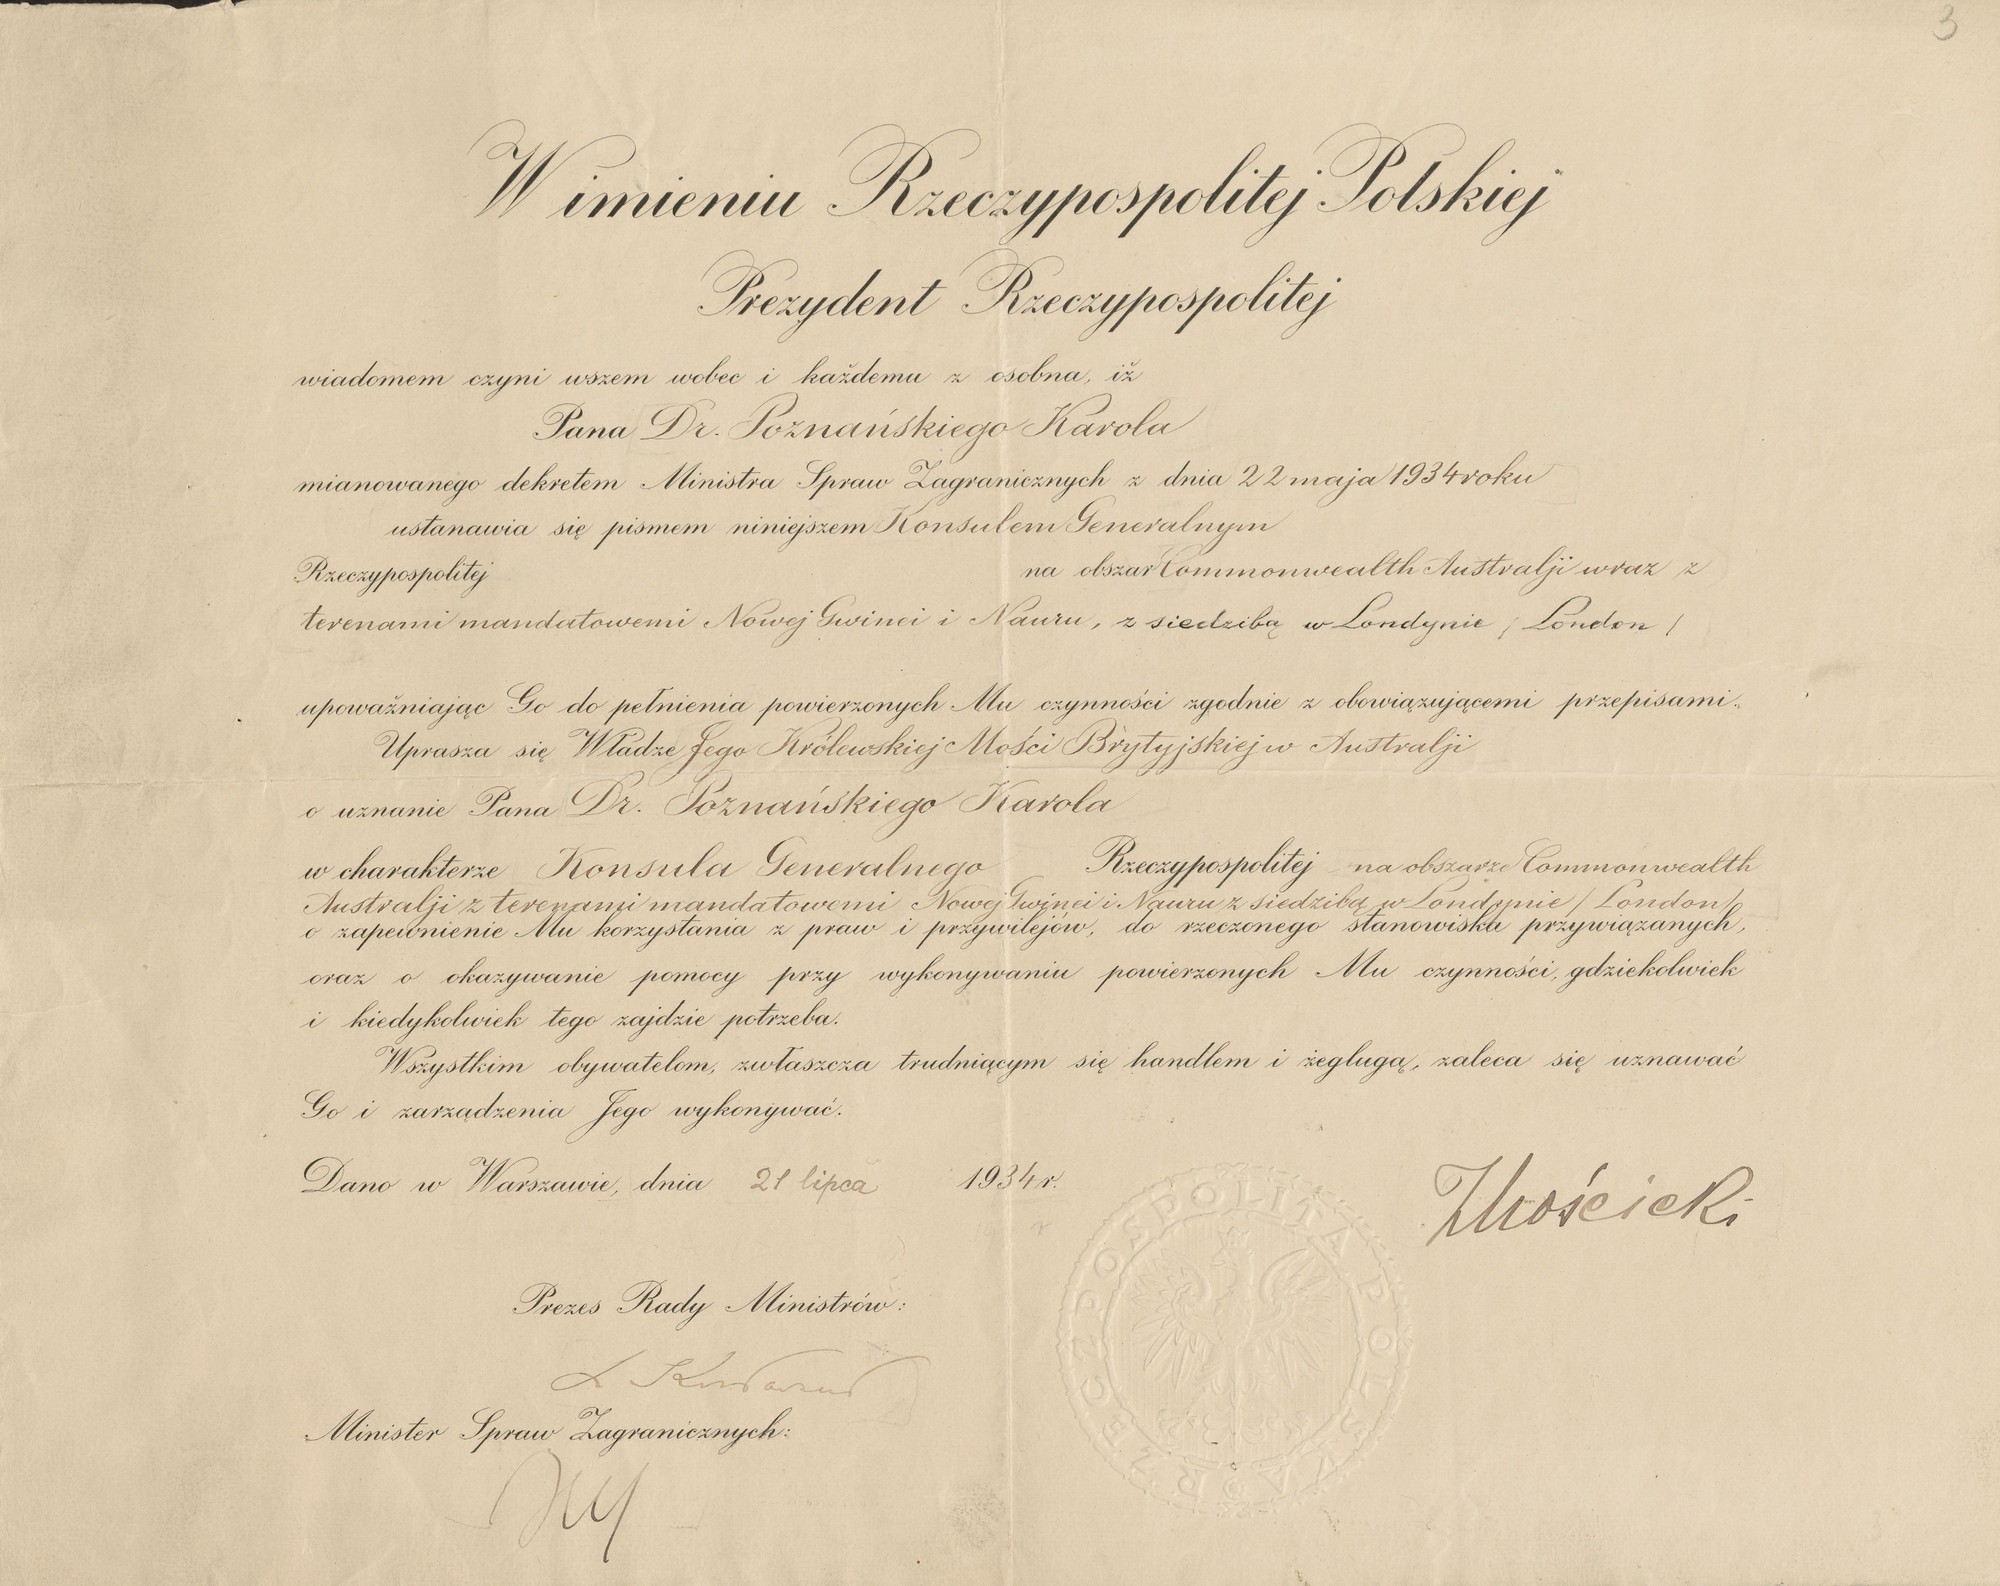 3
W imieniu Rzeczypospolitej Polskiej
Prezydent Rzeczypospolitej
wiadomem czyni wszem wobec i każdemu z osobna, iż
Pana Dr. Poznańskiego Karola
mianowanego dekretem Ministra Spraw Zagranicznych z dnia 22 maja 1934 roku
ustanawia się pismem niniejszem Konsulem Generalnym
Rzeczypospolitej na obszar Commonwealth Australji wraz z
terenami mandatowemi Nowej Gwinei i Nauru, z siedzibą w Londynie / London /
upoważniając Go do pełnienia powierzonych Mu czynności zgodnie z obowiązującemi przepisami.
Uprasza się Władze Jego Królewskiej Mości Brytyjskiej w Australji
o uznanie Pana Dr. Poznańskiego Karola
w charakterze Konsula Generalnego Rzeczypospolitej na obszarze Commonwealth
Australji z terenami mandatowemi Nowej Gwinei i Nauru z siedzibą w Londynie / London /
o zapewnienie Mu korzystania z praw i przywilejów, do rzeczonego stanowiska przywiązanych,
oraz o okazywanie pomocy przy wykonywaniu powierzonych Mu czynności, gdziekolwiek
i kiedykolwiek tego zajdzie potrzeba.
Wszystkim obywatelom, zwłaszcza trudniącym się handlem i żeglugą, zaleca się uznawać
Go i zarządzenia Jego wykonywać.
Dano w Warszawie, dnia 21 lipca 1934 r.
RZECZPOSPOLITA POLSKA
IMościcki
Prezes Rady Ministrów:
Minister Spraw Zagranicznych: